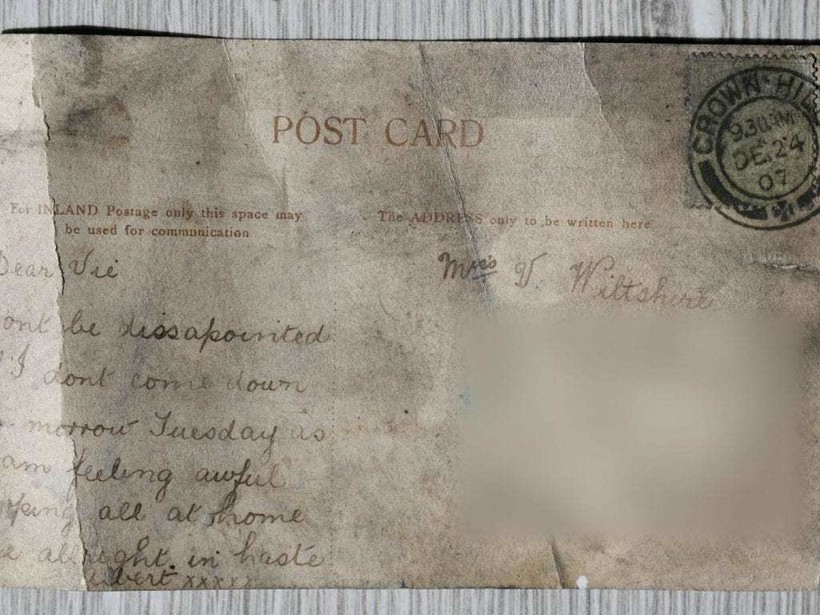 POST CARD
CROWN HIL
9 30 AM
DE 24
07
For INLAND Postage only this space may
be used for communication
The ADDRESS only to be written here
Dear Vie
ont be dissapointed
I dont come down
morrow Tuesday as
am feeling awful
ping all at home
e allright. in haste
bert xxxxx
Mrs V. Wiltshire